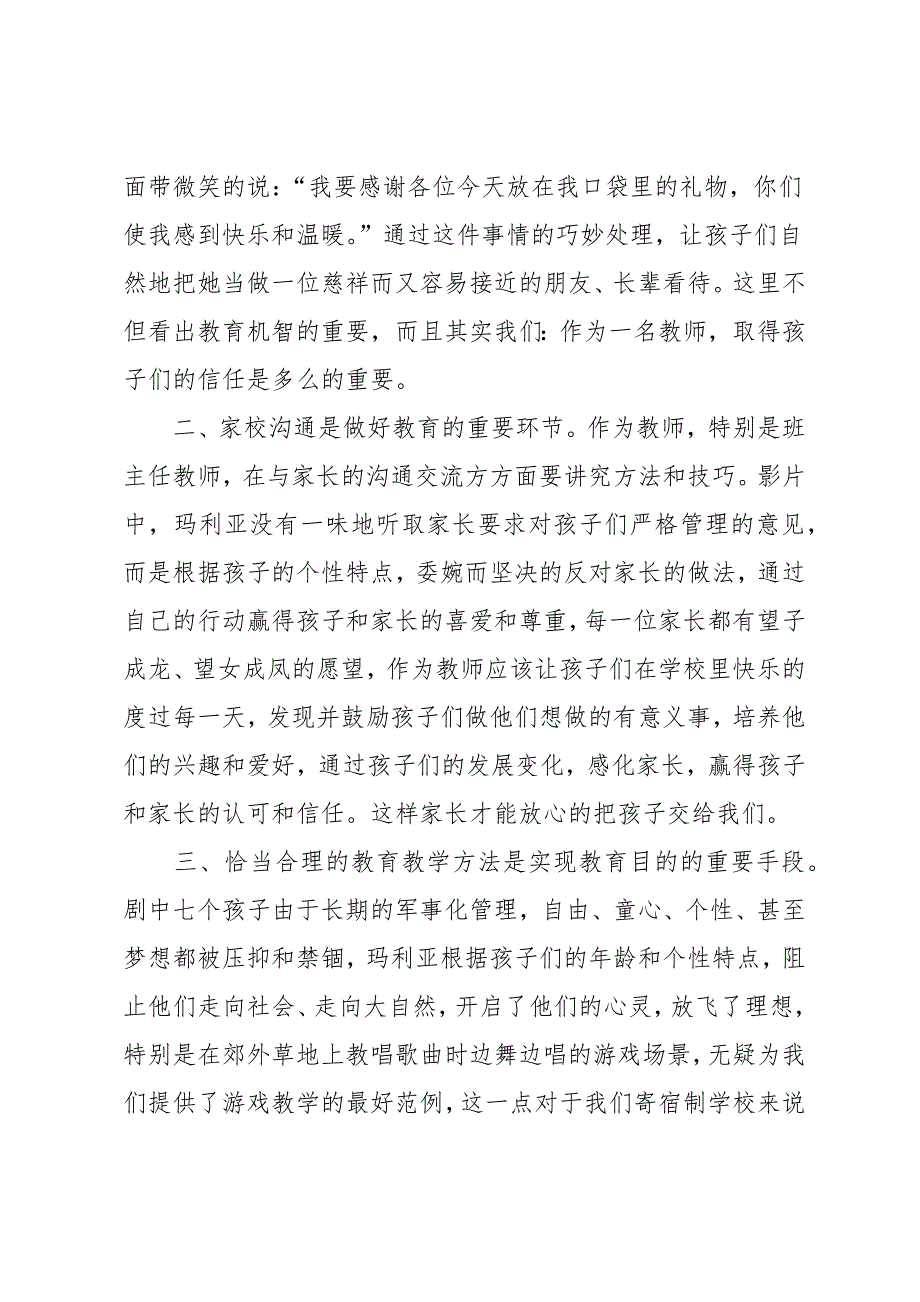 面带微笑的说：“我要感谢各位今天放在我口袋里的礼物，你们
使我感到快乐和温暖。”通过这件事情的巧妙处理，让孩子们自
然地把她当做一位慈祥而又容易接近的朋友、长辈看待。这里不
但看出教育机智的重要，而且其实我们：作为一名教师，取得孩
子们的信任是多么的重要。
二、家校沟通是做好教育的重要环节。作为教师，特别是班
主任教师，在与家长的沟通交流方方面要讲究方法和技巧。影片
中，玛利亚没有一味地听取家长要求对孩子们严格管理的意见，
而是根据孩子的个性特点，委婉而坚决的反对家长的做法，通过
自己的行动赢得孩子和家长的喜爱和尊重，每一位家长都有望子
成龙、望女成凤的愿望，作为教师应该让孩子们在学校里快乐的
度过每一天，发现并鼓励孩子们做他们想做的有意义事，培养他
们的兴趣和爱好，通过孩子们的发展变化，感化家长，赢得孩子
和家长的认可和信任。这样家长才能放心的把孩子交给我们。
三、恰当合理的教育教学方法是实现教育目的的重要手段。
剧中七个孩子由于长期的军事化管理，自由、童心、个性、甚至
梦想都被压抑和禁锢，玛利亚根据孩子们的年龄和个性特点，阻
止他们走向社会、走向大自然，开启了他们的心灵，放飞了理想，
特别是在郊外草地上教唱歌曲时边舞边唱的游戏场景，无疑为我
们提供了游戏教学的最好范例，这一点对于我们寄宿制学校来说